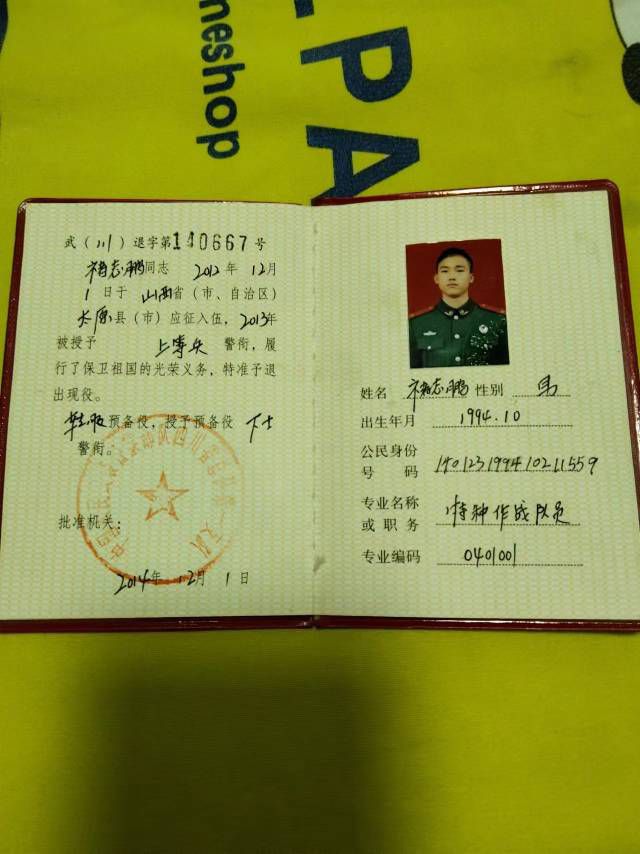 neshop
PA
武（川）退字第140667号
志鹏同志 2012年12月
1日于山西省（市、自治区）
太原县（市）应征入伍，2013年
被授予 上等兵 警衔，履
行了保卫祖国的光荣义务，特准予退
出现役。
预备役，授予预备役 下士
警衔。
批准机关：
2014年 12月 1日
姓名 志鹏 性别 男
出生年月 1994.10
公民身份
号码 140123199410211559
专业名称 特种作战队员
或职务
专业编码 0401001